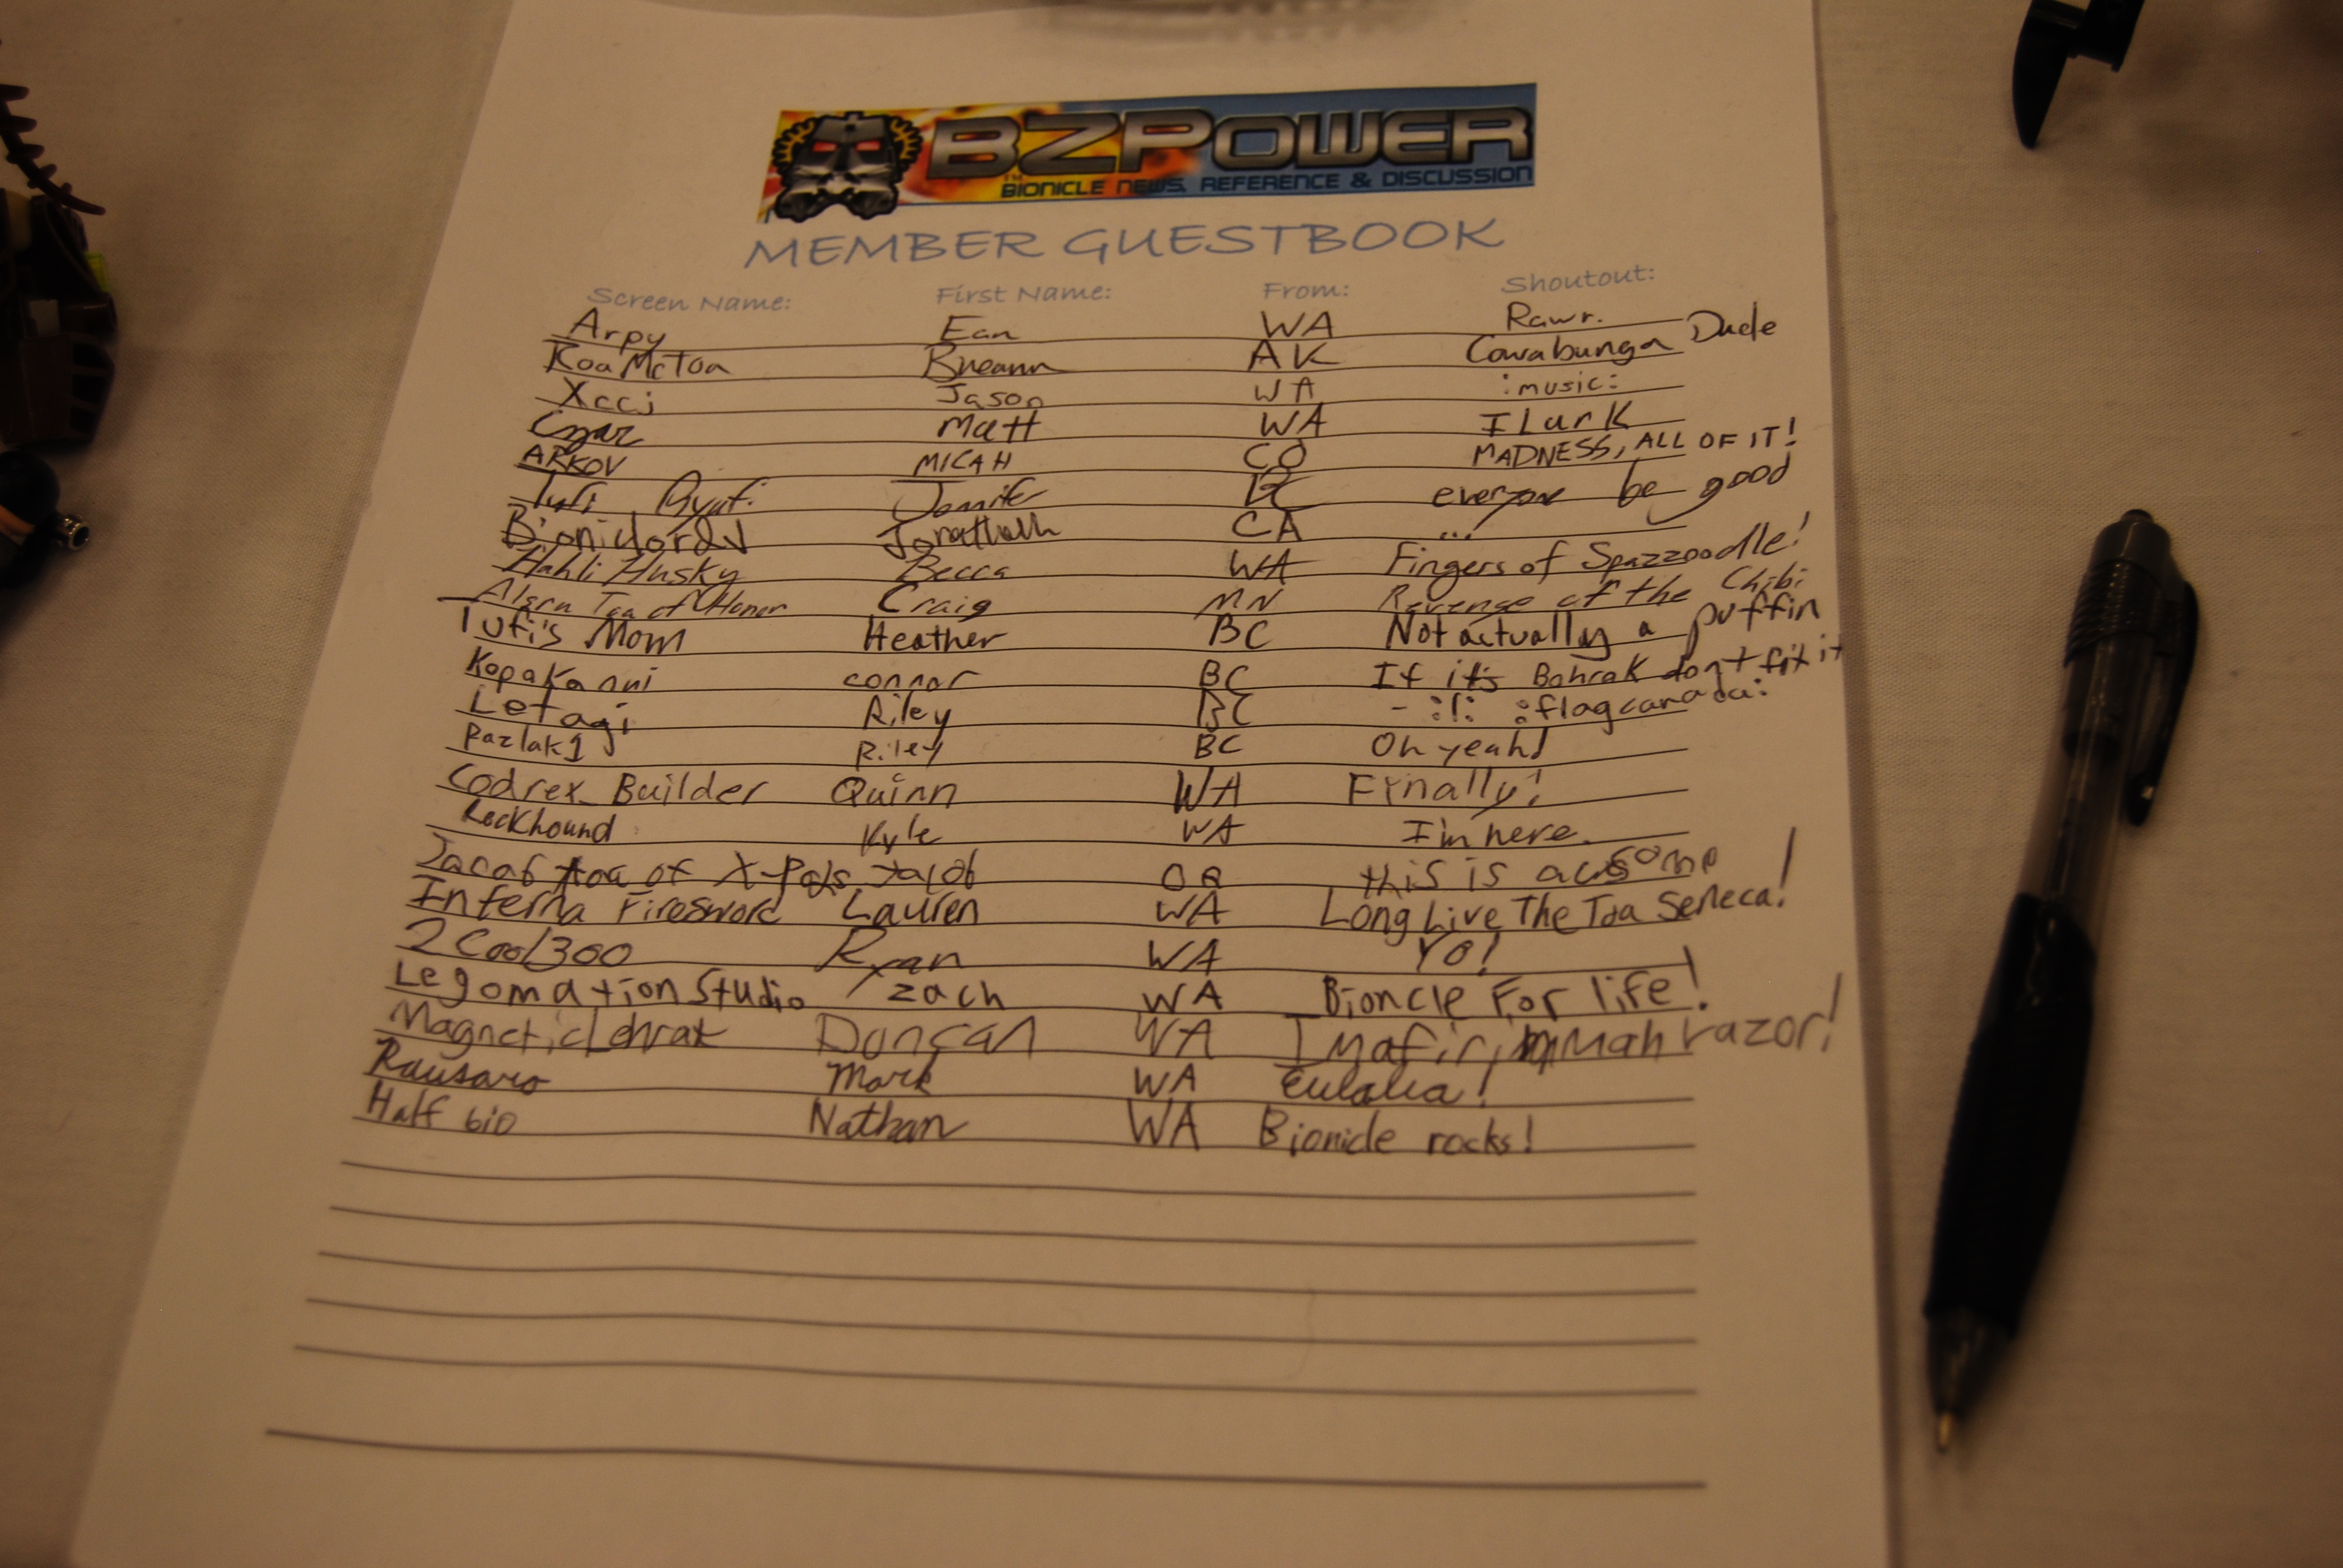 BZPOWER
BIONICLE NEWS, REFERENCE & DISCUSSION
MEMBER GUESTBOOK
Screen Name: First Name: From: Shoutout:
Arpy Ean WA Rawr.
KoaMcToa Breann AK Cowabunga Dude
Xccj Jason WA :music:
Czar Matt WA I Lurk
ARKOV MICAH CO MADNESS, ALL OF IT!
Tufi Piyufi BC everyone be good
BioniclordJ Jonathan CA ...
Hahli Husky Becca WA Fingers of Spazzoodle!
Toa of Honor Craig MN Revenge of the Chibi
Tufi's Mom Heather BC Not actually a puffin
KopakaNui connor BC If it's Bohrok don't fix it
Letagi Riley BC - :l: :flagcanada:
Pazlak1 Riley BC Oh yeah!
Codrex_Builder Quinn WA Finally!
Rockhound Kyle WA I'm here.
Jacob toa of X-Pods Jacob OR this is awesome
Inferna Firesword Lauren WA Long Live The Toa Seneca!
2Cool300 Ryan WA YO!
LegomationStudio zach WA Bioncle For life!
MagneticLehrak Duncan WA razor!
Rausaro Mark WA Eulalia!
Half bio Nathan WA Bionicle rocks!